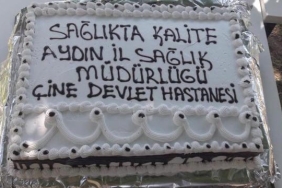 SAĞLIKTA KALİTE
AYDIN İL SAĞLIK
MÜDÜRLÜĞÜ
ÇİNE DEVLET HASTANESİ